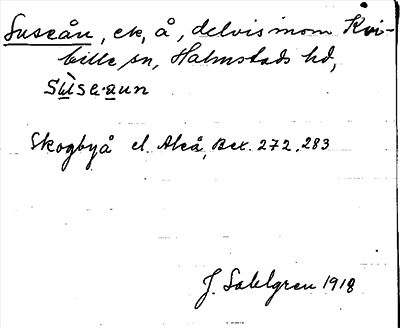 Suseån, ek, å, delvis inom Kvi-
bille sn, Halmstads hd,
Sùse·aun
Skogbyå el. Aleå, Bex. 272. 283
J. Sahlgren 1918